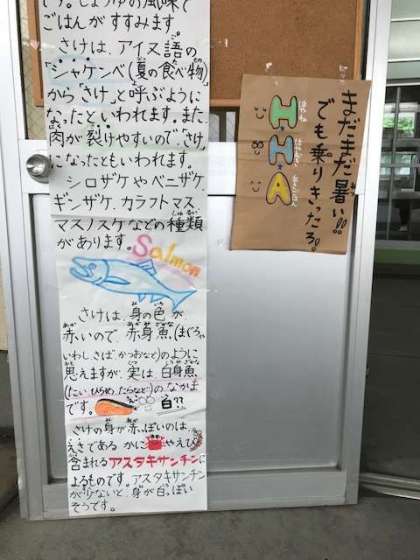 う。しょうゆの風味で
ごはんがすすみます。
さけは、アイヌ語の
「シャケンベ」(夏の食べ物)
から「さけ」と呼ぶように
なったといわれます。また、
肉が裂けやすいので「さけ」
になったともいわれます。
シロザケやベニザケ、
ギンザケ、カラフトマス、
マスノスケなどの種類
があります。
Salmon
さけは、身の色が
赤いので、赤身魚(まぐろ、
いわし、さば、かつおなど)のように
思えますが、実は白身魚
(たい、ひらめ、たらなど)のなかま
です。 白!!
さけの身が赤っぽいのは、
えさである かに やえび に
含まれるアスタキサンチンに
よるものです。アスタキサンチン
が少ないと、身が白っぽい
そうです。
まだまだ暑い!!
でも乗りきったろ。
はやね
H
はやおき
H
あさごはん
A